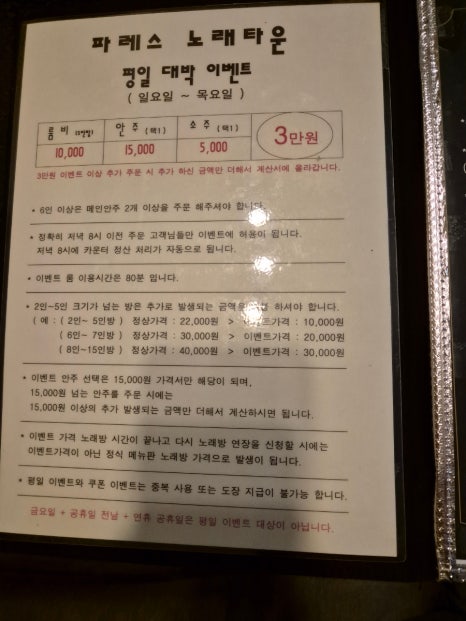 파레스 노래타운
평일 대박 이벤트
( 일요일 ~ 목요일 )
룸 비 안 주 (택1) 소 주 (택1) 3만원
10,000 15,000 5,000
3만원 이벤트 이상 추가 주문 시 추가 하신 금액만 더해서 계산서에 올라갑니다.
* 6인 이상은 메인안주 2개 이상을 주문 해주셔야 합니다.
* 정확히 저녁 8시 이전 주문 고객님들만 이벤트에 허용이 됩니다.
저녁 8시에 카운터 정산 처리가 자동으로 됩니다.
* 이벤트 룸 이용시간은 80분 입니다.
* 2인~5인 크기가 넘는 방은 추가로 발생되는 금액을 하셔야 합니다.
( 예 : ( 2인~ 5인방 ) 정상가격 : 22,000원 > 이벤트가격 : 10,000원
(6인~ 7인방) 정상가격 : 30,000원 > 이벤트가격 : 20,000원
(8인~15인방) 정상가격 : 40,000원 > 이벤트가격 : 30,000원
* 이벤트 안주 선택은 15,000원 가격서만 해당이 되며,
15,000원 넘는 안주를 주문 시에는
15,000원 이상의 추가 발생되는 금액만 더해서 계산하시면 됩니다.
* 이벤트 가격 노래방 시간이 끝나고 다시 노래방 연장을 신청할 시에는
이벤트가격이 아닌 정식 메뉴판 노래방 가격으로 발생이 됩니다.
* 평일 이벤트와 쿠폰 이벤트는 중복 사용 또는 도장 지급이 불가능 합니다.
금요일 + 공휴일 전날 + 연휴 공휴일은 평일 이벤트 대상이 아닙니다.